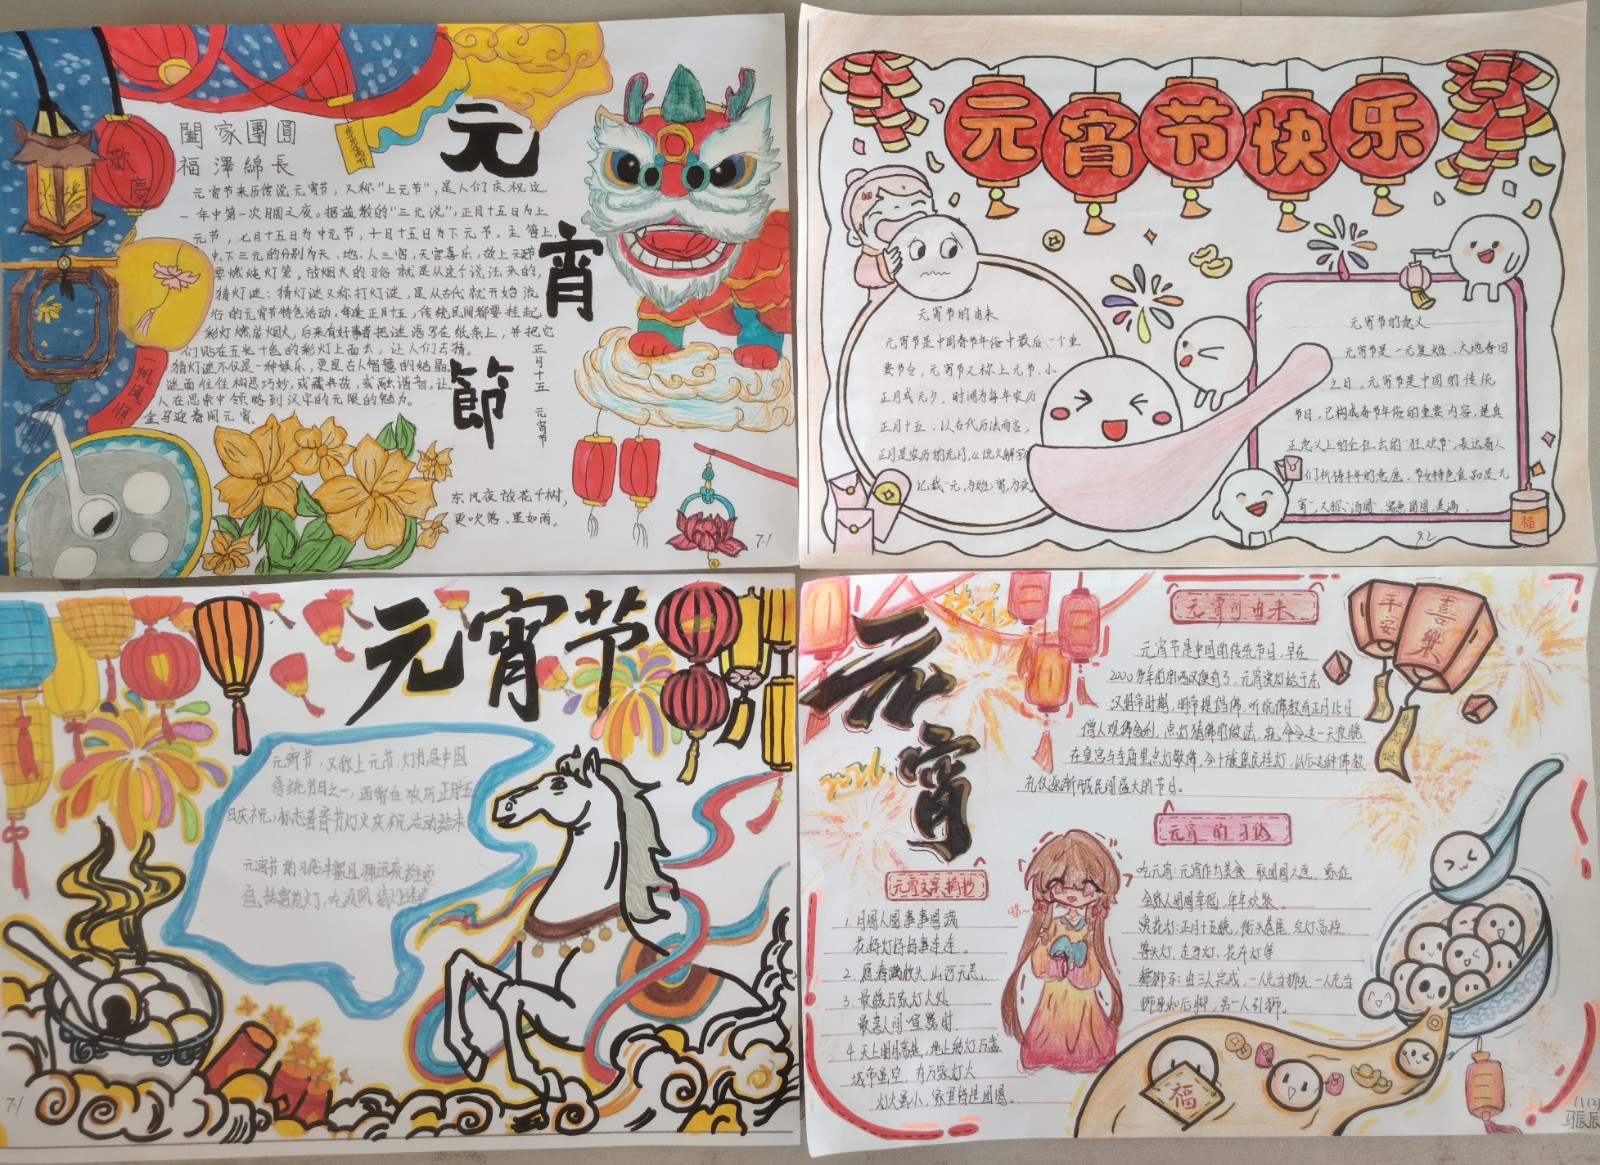 元宵節
歡慶
闔家團圓
福澤綿長
元宵节来历传说元宵节，又称"上元节"，是人们庆祝这
一年中第一次月圆之夜。
元节，七月十五日为中元节，十月十五日为下元节。
要燃灯
猜灯谜：猜灯谜又称打灯谜，是从古代就开始流
行的元宵节特色活动，每逢正月十五，传统民间都要挂起
彩灯燃放烟火，后来有好事者把谜语写在纸条上，并把它
们贴在五光十色的彩灯上面去，让人们去猜。
猜灯谜不仅是一种娱乐，更是古人智慧的结晶，
谜面往往构思巧妙，或藏典故，或融谐音，让
人在思索中领略到汉字的无限的魅力。
金马迎春闹元宵。
一帆风顺
正月十五 元宵节
东风夜放花千树，
更吹落、星如雨。
7.1
元宵节快乐
元宵节的由来
元宵节是中国春节年俗中最后一个重
要节令，元宵节又称上元节、小
正月或元夕，时间为每年农历
正月十五，以古代历法而言，
正月是农历的元月，
记载"元，为始；宵，为夜
元宵节的意义
元宵节是一元复始、大地春回
之日。元宵节是中国的传统
节日，已构成春节年俗的重要内容，是真
正意义上的全社会的"狂欢节"，表达着人
们祈祷丰年的意愿，节日特色食品是元
宵"，又称"汤圆"，寓意团圆美满。
福
9.2
元宵节
元宵节，又称上元节，灯节，是中国
传统节日之一，通常在农历正月十五
日庆祝，标志着春节灯火庆祝活动结束
元宵节的习俗丰富且源远流长
赏花灯，吃汤圆，猜灯谜等
7.1
元宵
元宵的由来
元宵节是中国的传统节日，早在
2000多年前的西汉便有了，元宵赏灯始于东
汉明帝时期，明帝提倡佛，听说佛教有正月15日
僧人观佛舍利，点灯敬佛的做法，就命令这一天夜晚
在皇宫与寺庙里点灯敬佛，令士族庶民挂灯，以后这种佛教
礼仪逐渐形成民间盛大的节日。
平安
喜樂
元宵的习俗
吃元宵：元宵作为美食，取团圆之意，象征
全家人团圆幸福，年年欢聚。
赏花灯：正月十五晚，街头巷尾，红灯高挂，
等大灯，走马灯，花卉灯等
舞狮子：由三人完成，一人充当狮头，一人充当
狮身和后脚，另一人引狮。
元宵文案摘抄
1. 月圆人圆事事圆满
花好灯好好事连连。
2. 愿春满收火，山河无恙。
3. 最暖万家灯火处
最美人间宜赏时
4. 天上明月高悬，地上的灯万盏
城市虽空，有万家灯火
灯火虽小，家里皆是团圆。
喵~
福
11(2)
马辰辰